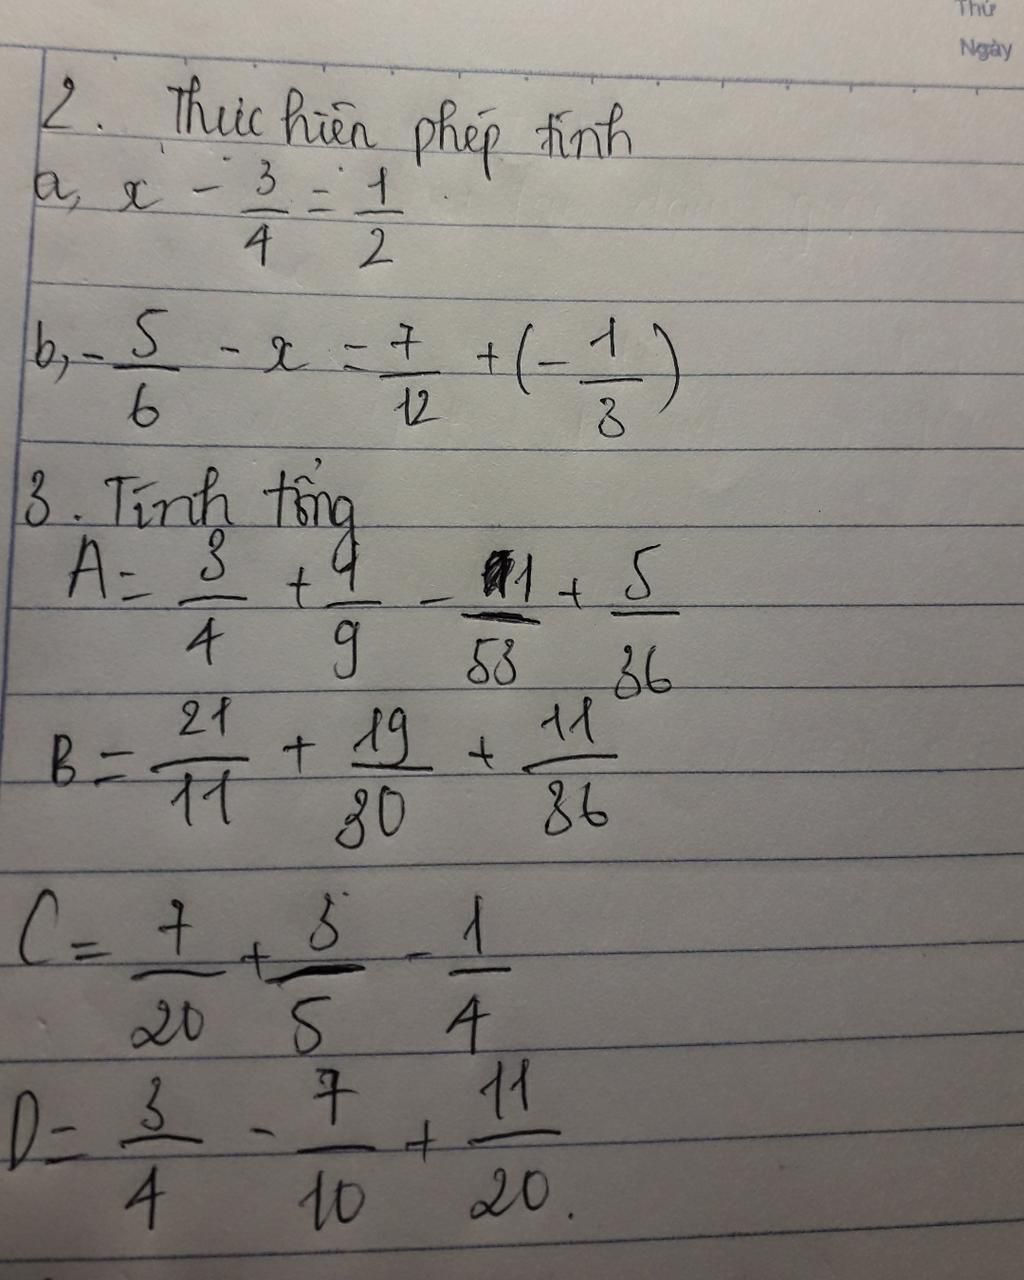 Thứ
Ngày
2. Thực hiện phép tính
a, x - 3/4 = 1/2
b, - 5/6 - x = 7/12 + (- 1/3)
3. Tính tổng
A = 3/4 + 1/9 - 1/53 + 5/36
B = 21/11 + 19/30 + 11/36
C = 7/20 + 3/5 - 1/4
D = 3/4 - 7/10 + 11/20.